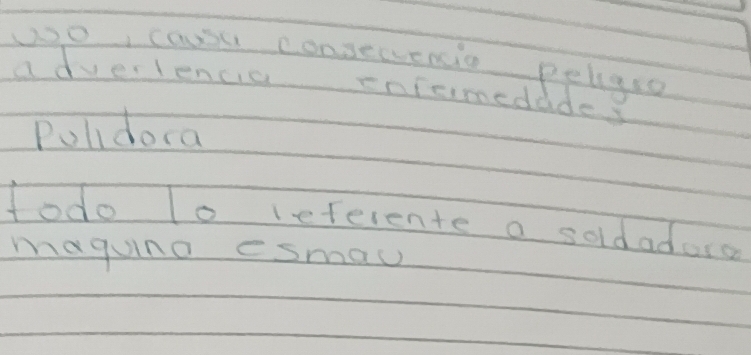 uso, causa consecuencia peligro
advertencia enfermedades
Pulidora
todo lo referente a soldadura
maquina esmau